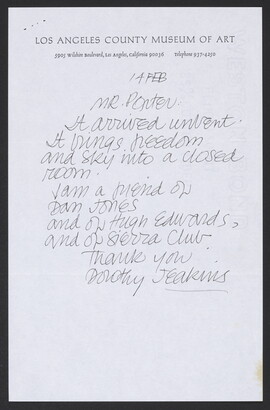 LOS ANGELES COUNTY MUSEUM OF ART
5905 Wilshire Boulevard, Los Angeles, California 90036 Telephone 937-4250
14 FEB
Mr. Porter.
It arrived unbent.
It brings freedom
and sky into a closed
room.
I am a friend of
Dan Jones
and of Hugh Edwards,
and of Sierra Club.
Thank you
Dorothy Jeakins